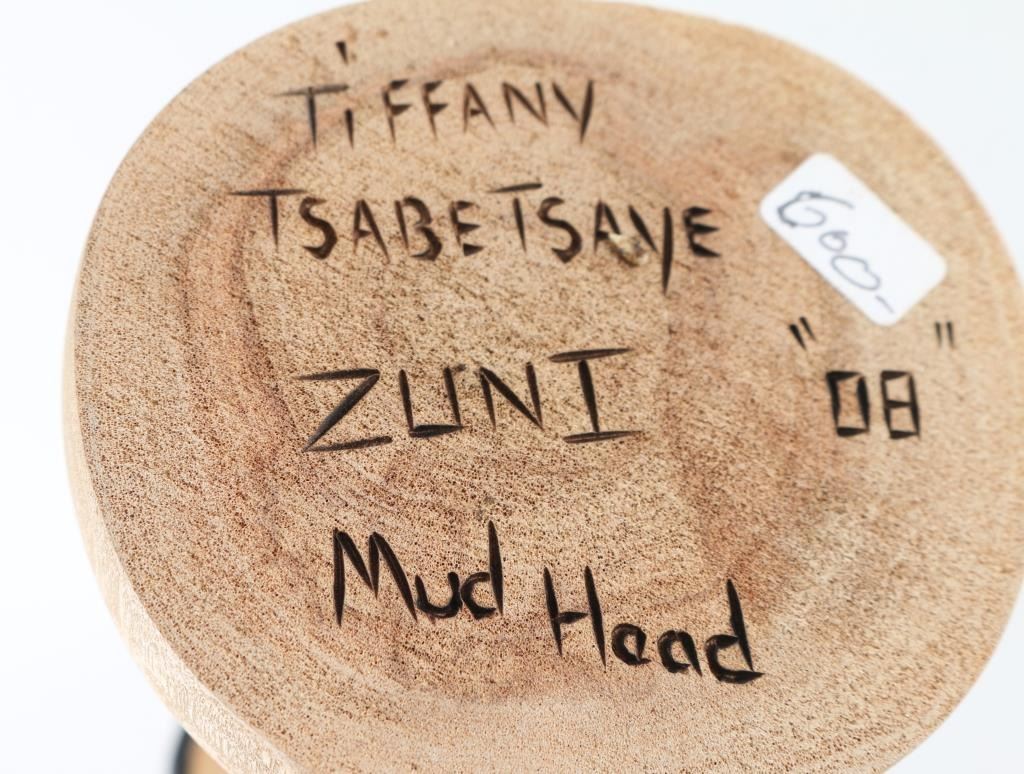 TiFFANY
TSABETSAYE
600-
"08"
ZUNI
Mud Head